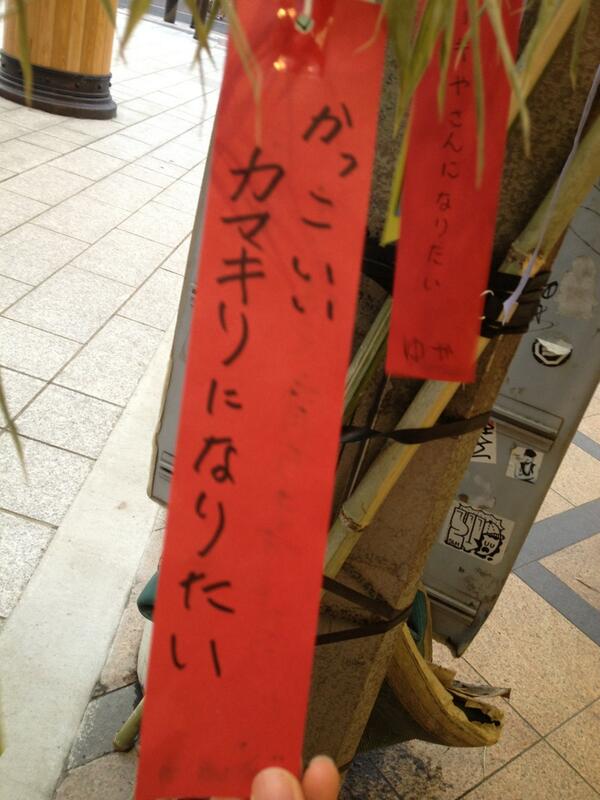 かっこいい
カマキリになりたい
やさんになりたい
ゆや